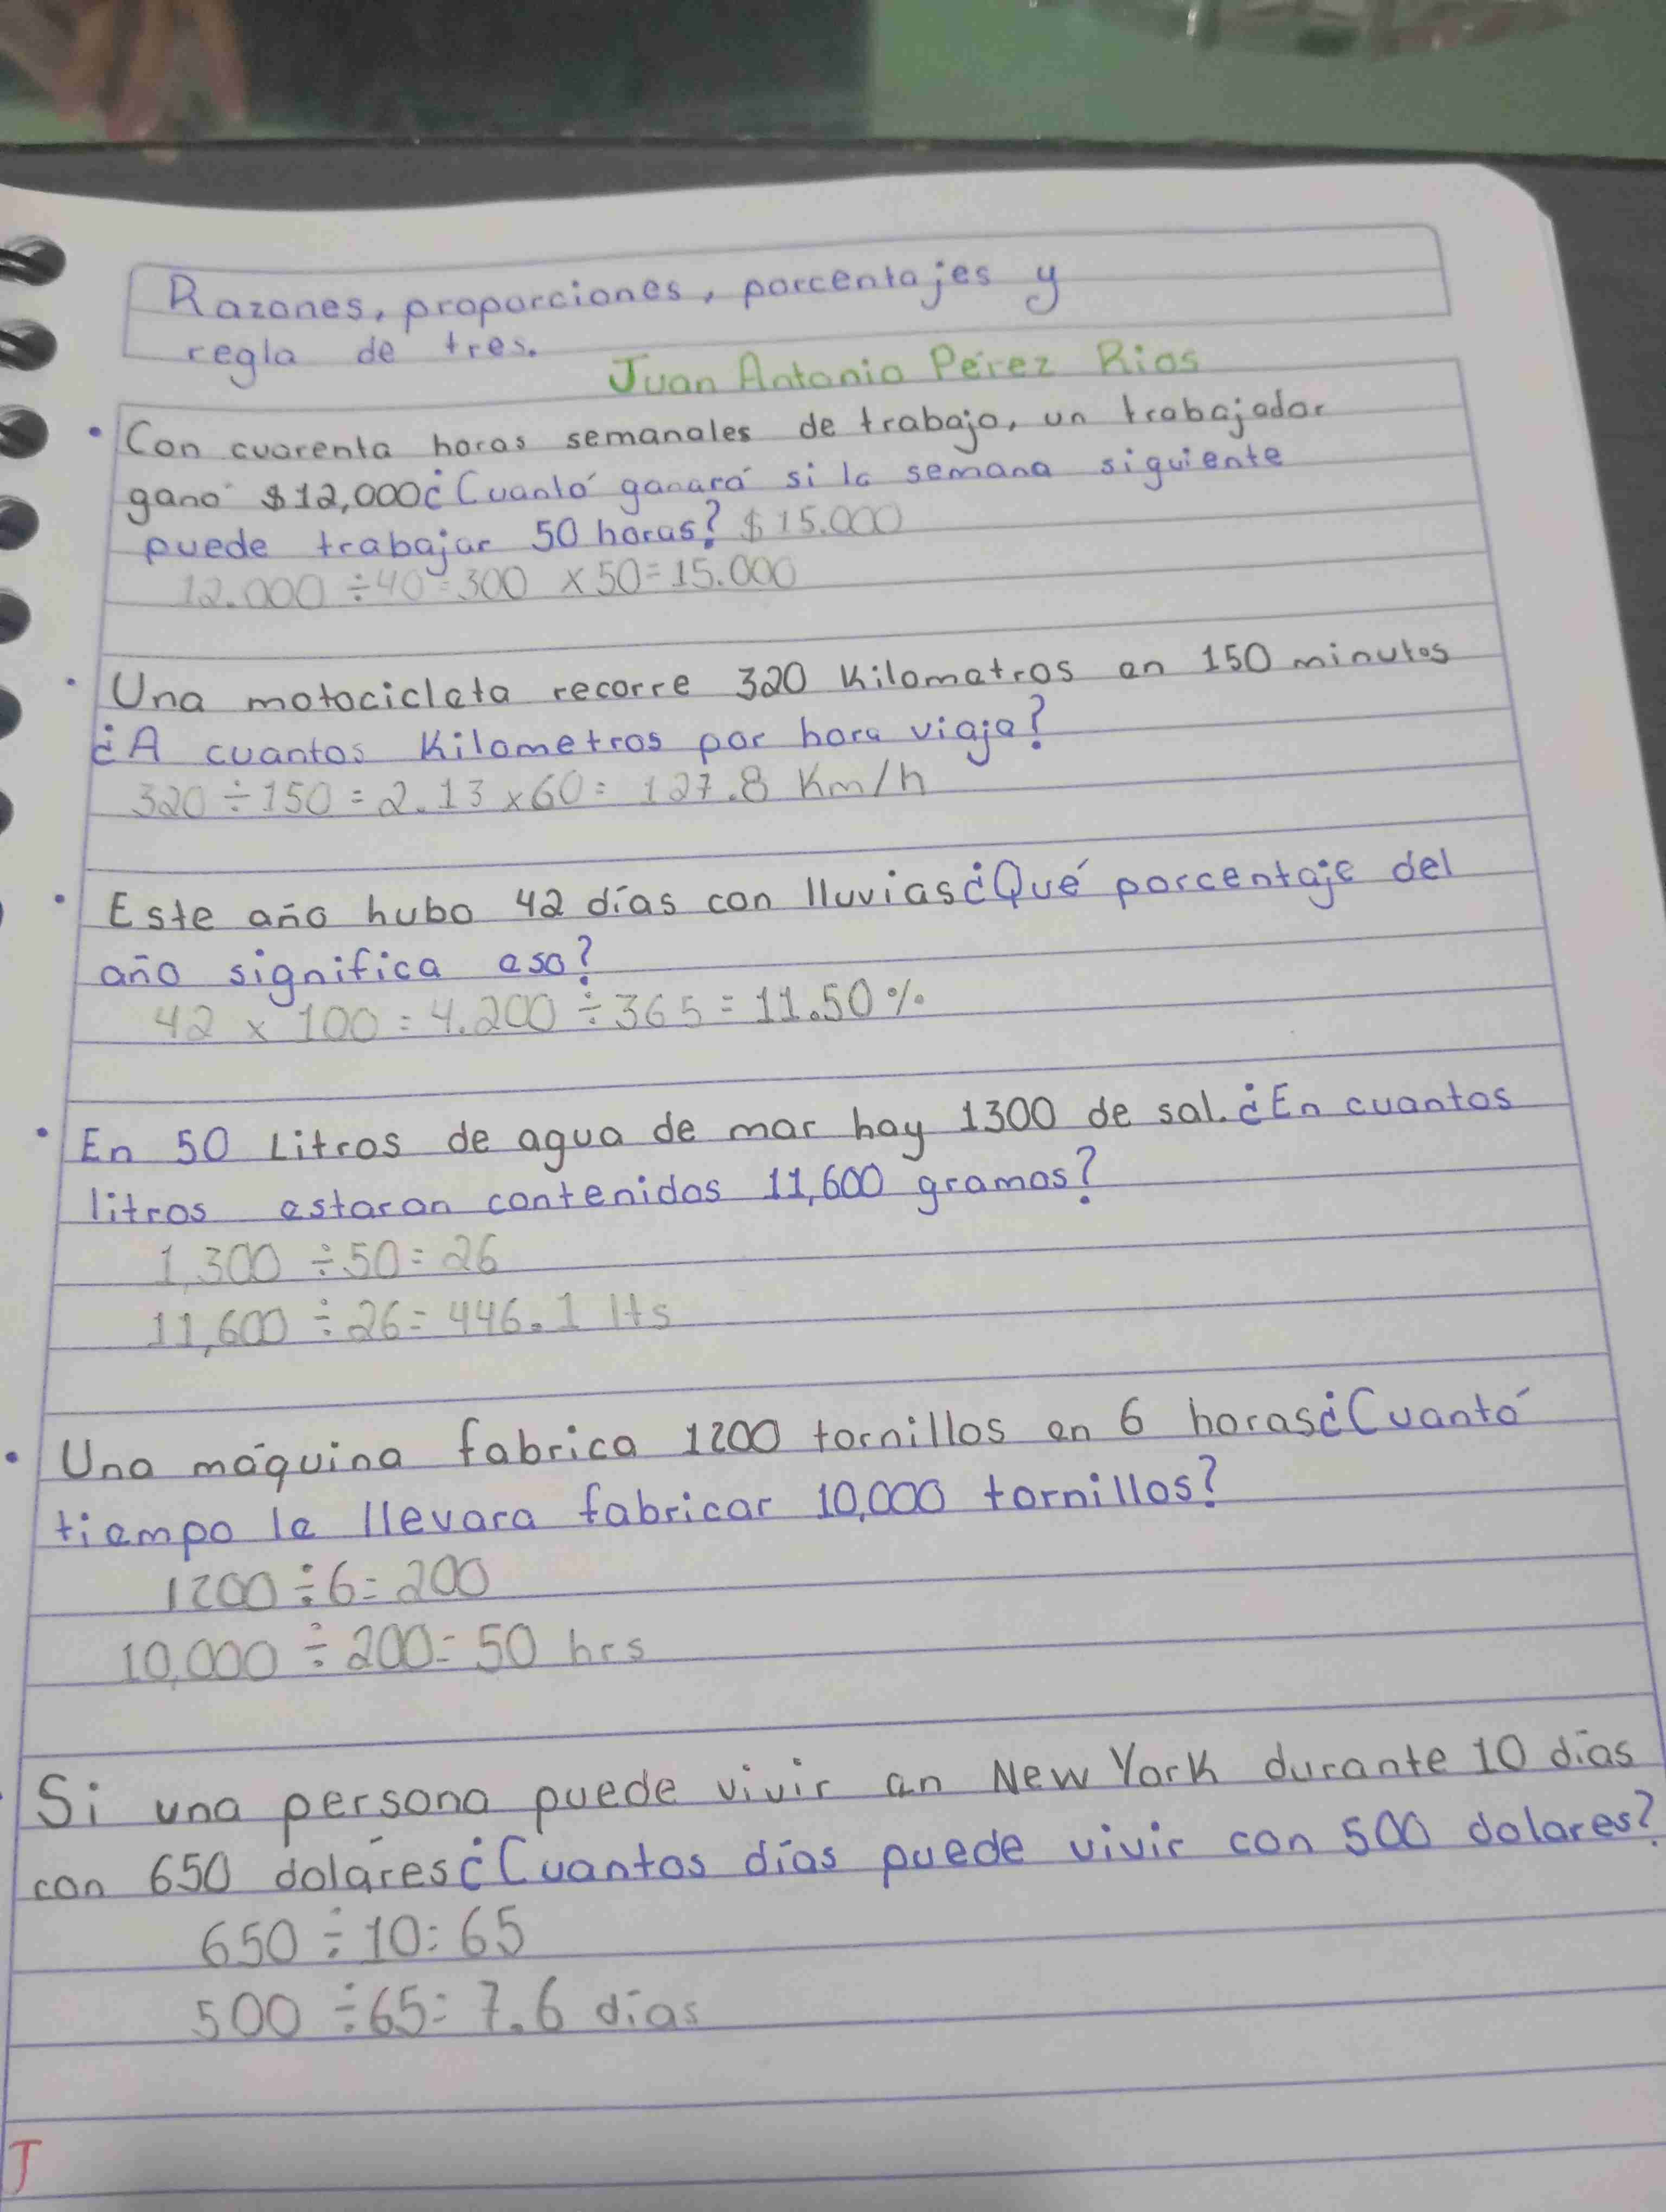 Razones, proporciones, porcentajes y
regla de tres.
Juan Antonio Pérez Rios
• Con cuarenta horas semanales de trabajo, un trabajador
ganó $12,000¿Cuantó ganará si la semana siguiente
puede trabajar 50 horas? $15.000
12.000 ÷40=300 x50=15.000
• Una motocicleta recorre 320 Kilometros en 150 minutos
¿A cuantos Kilometros por hora viaja?
320÷150=2.13x60= 127.8 Km/h
• Este año hubo 42 días con lluvias¿Qué porcentaje del
año significa eso?
42 x 100=4.200÷365=11.50%
• En 50 Litros de agua de mar hay 1300 de sal.¿En cuantos
litros estaran contenidos 11,600 gramos?
1,300 ÷50=26
11,600 ÷26=446.1 lts
• Una máquina fabrica 1200 tornillos en 6 horas¿Cuantó
tiempo le llevara fabricar 10,000 tornillos?
1200÷6=200
10,000 ÷200=50 hrs
• Si una persona puede vivir en New York durante 10 días
con 650 dolares¿Cuantos días puede vivir con 500 dolares?
650÷10=65
500÷65=7.6 días
J